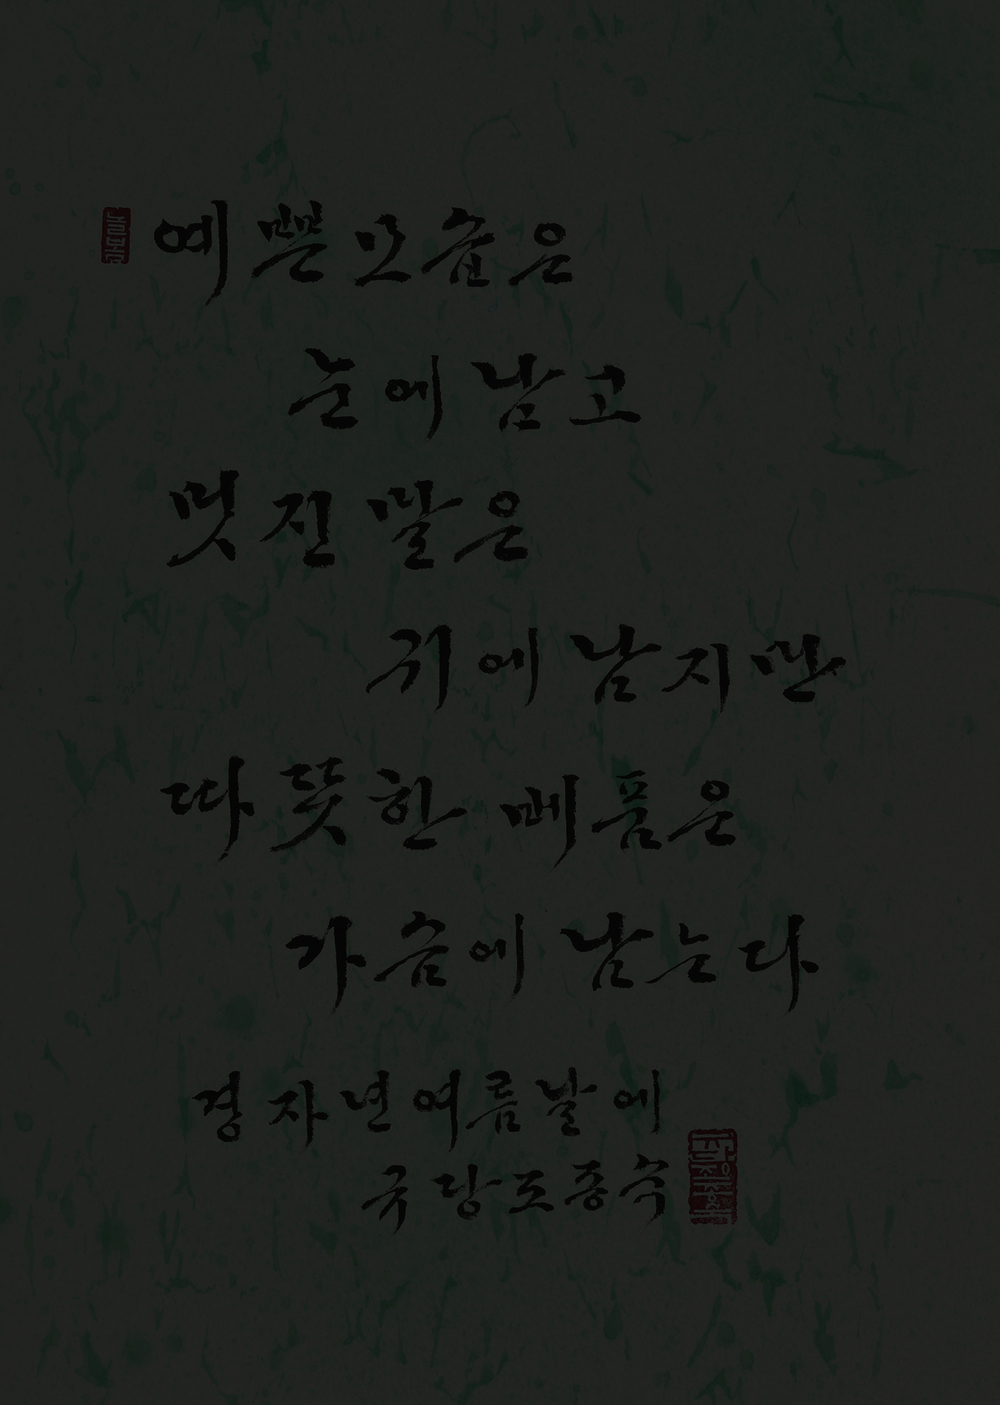 늘봄
예쁜 모습은
눈에 남고
멋진 말은
귀에 남지만
따뜻한 베품은
가슴에 남는다
경자년 여름날에
국당 조종숙